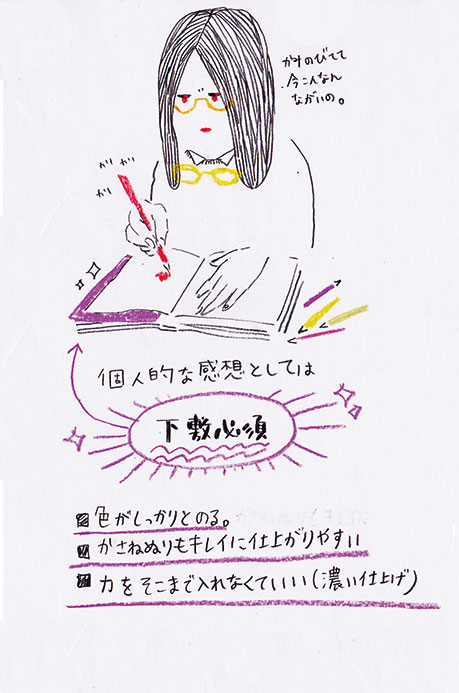 かみのびてて
今こんなん
ながいの。
ガガ
ガ
個人的な感想としては
下敷必須
色がしっかりとのる。
かさねぬりもキレイに仕上がりやすい
力をそこまで入れなくていい(濃い仕上げ)